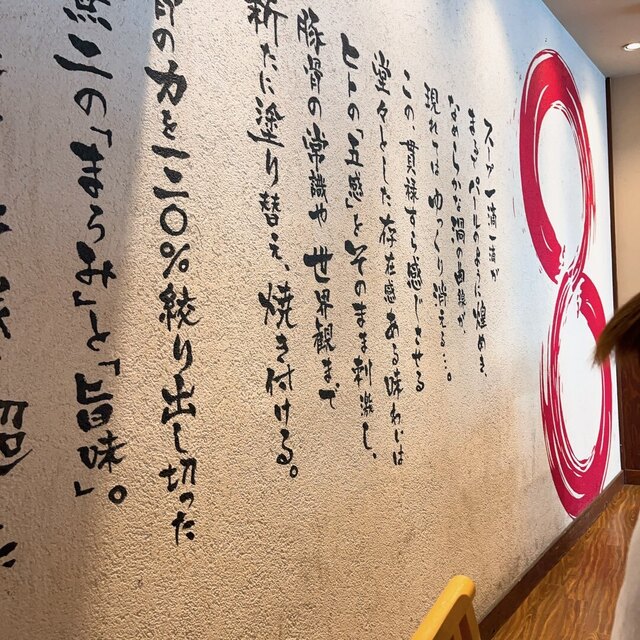 スープ一滴一滴が
まるでパールのように煌めき、
なめらかな潤の曲線が、
現れては ゆっくり消える…。
この、貫禄すら感じさせる
堂々とした存在感ある味わいは
ヒトの「五感」をそのまま刺激し、
豚骨の常識や世界観まで
新たに塗り替え、焼き付ける。
骨の力を一二〇%絞り出し切った
熊二の「まろみ」と「旨味」。
8